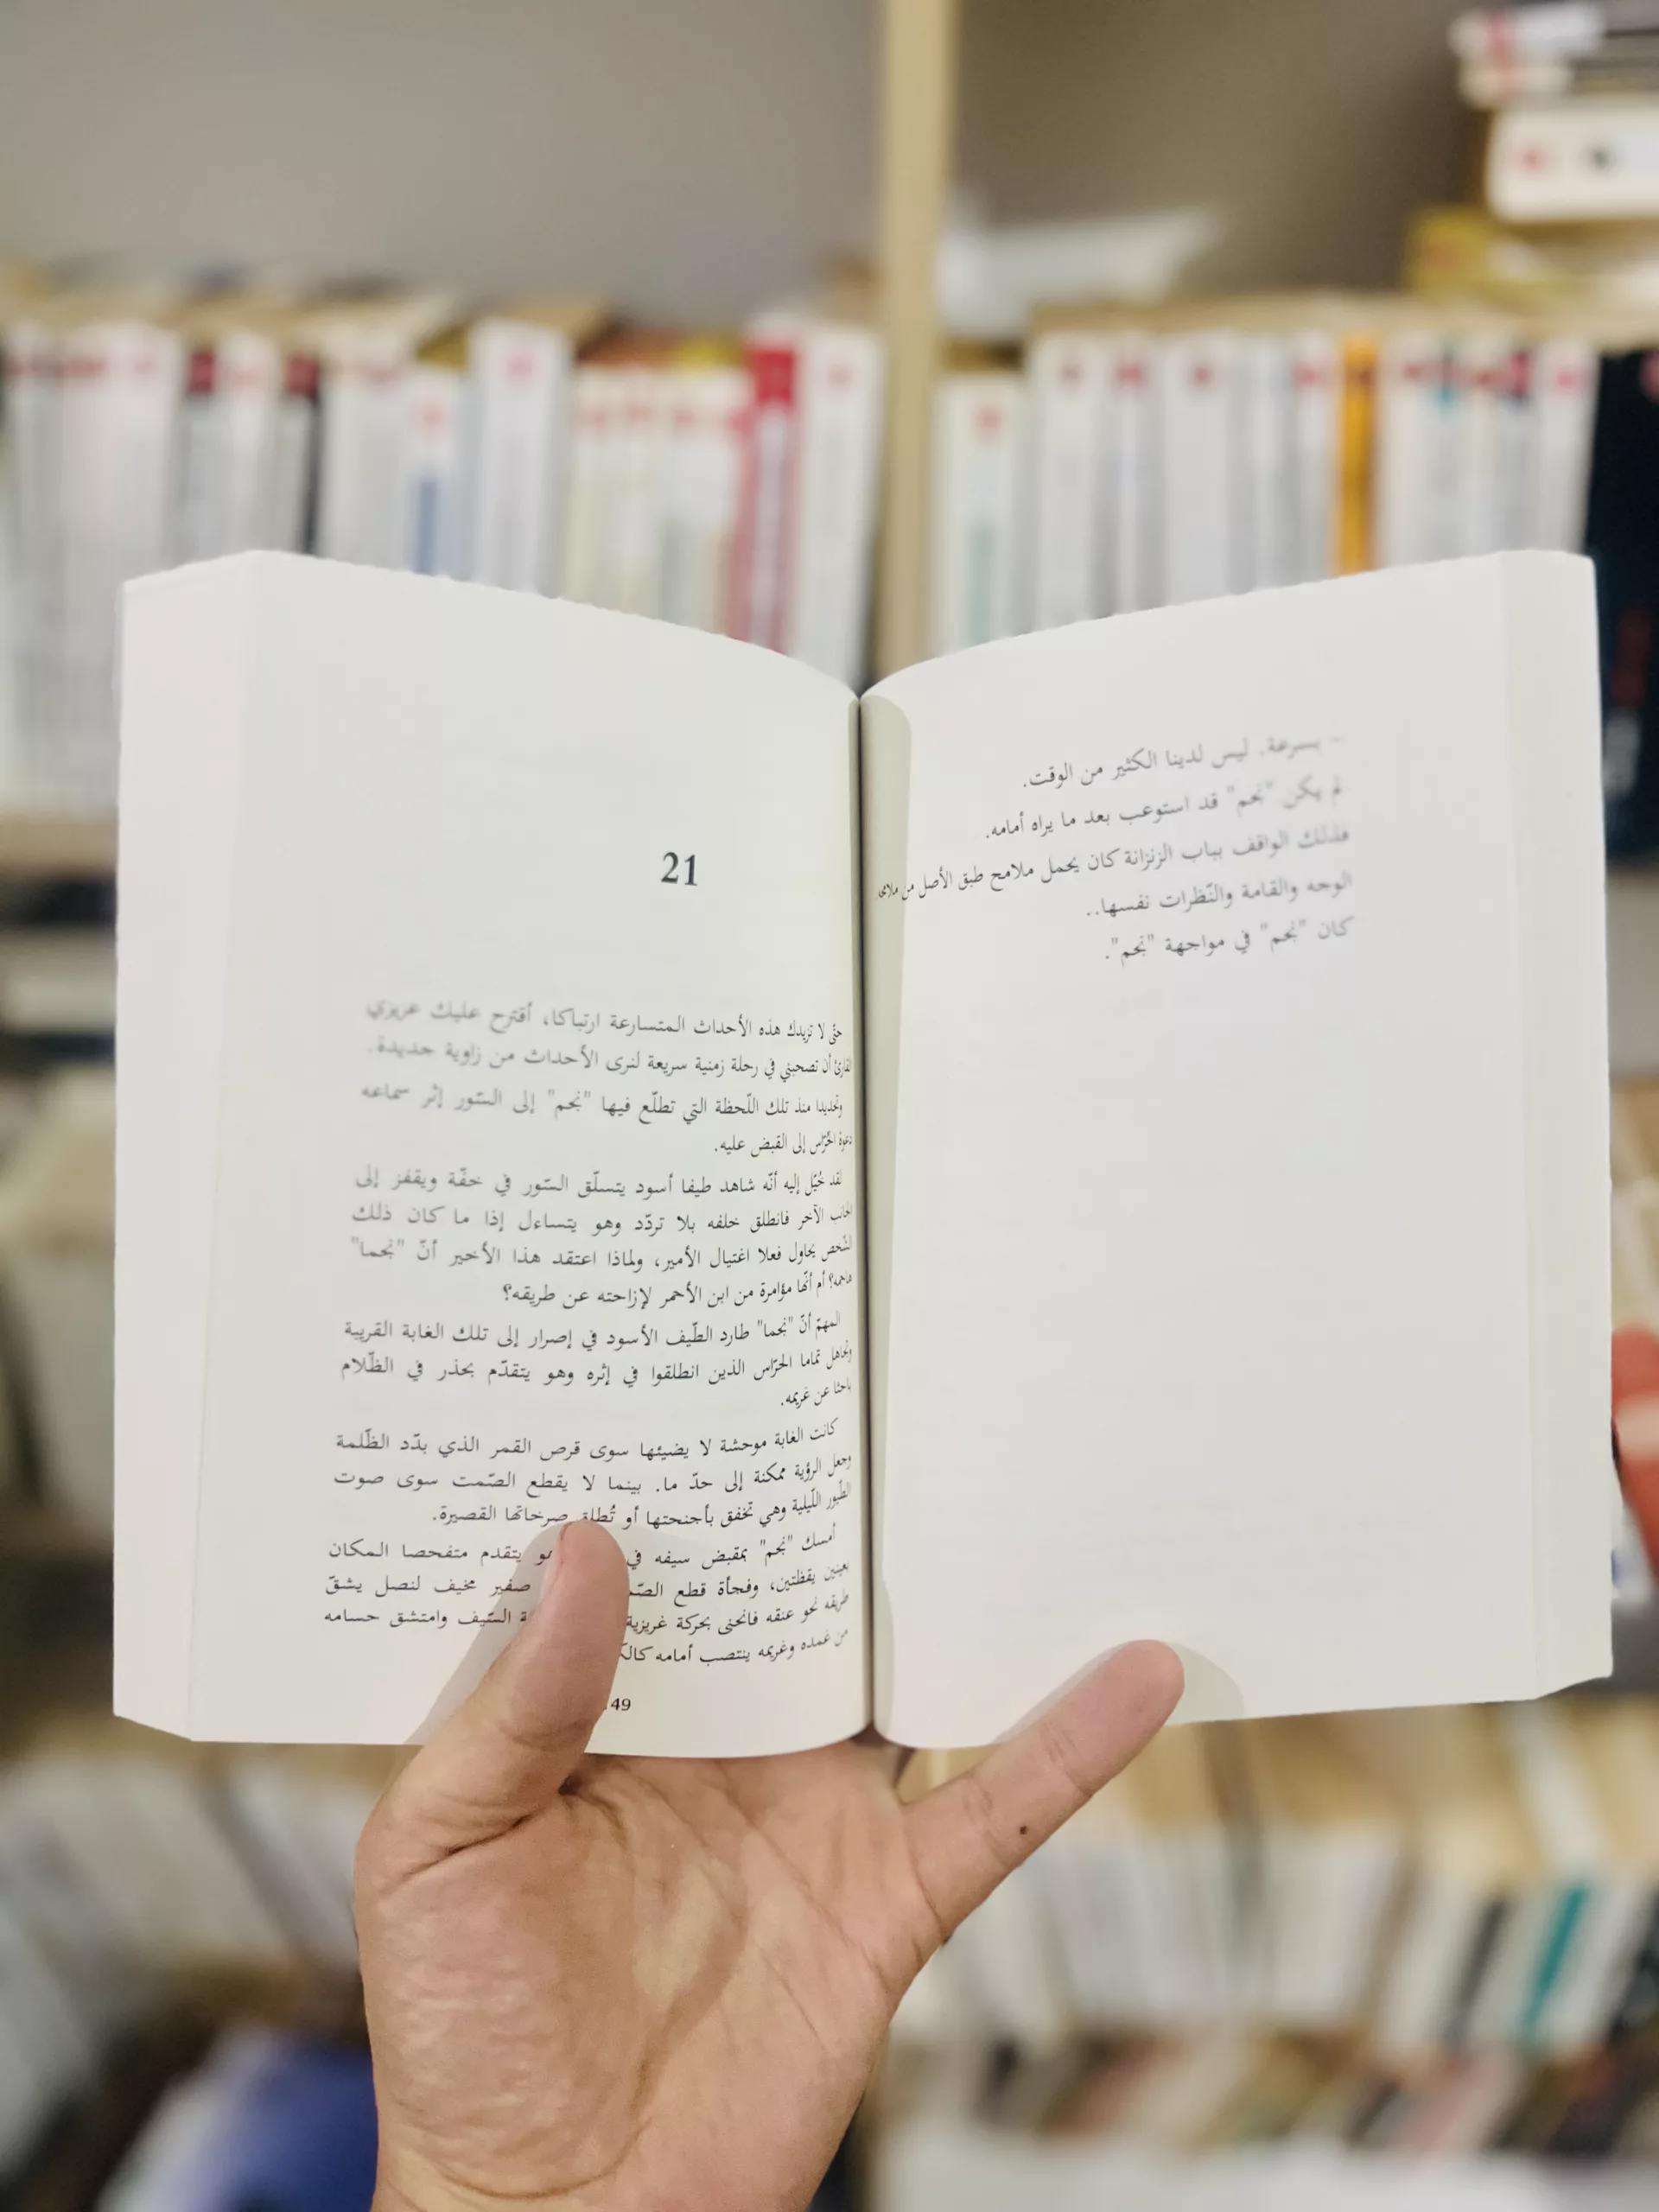 - بسرعة. ليس لدينا الكثير من الوقت.
لم يكن "نجم" قد استوعب بعد ما يراه أمامه.
فذلك الواقف بباب الزنزانة كان يحمل ملامح طبق الأصل من
الوجه والقامة والنّظرات نفسها..
كان "نجم" في مواجهة "نجم".
21
حتّى لا تزيدك هذه الأحداث المتسارعة ارتباكا، أقترح عليك عزيزي
القارئ أن تصحبني في رحلة زمنية سريعة لنرى الأحداث من زاوية جديدة.
وتحديدا منذ تلك اللّحظة التي تطلّع فيها "نجم" إلى السّور إثر سماعه
دعوة الحرّاس إلى القبض عليه.
لقد خُيّل إليه أنّه شاهد طيفا أسود يتسلّق السّور في خفّة ويقفز إلى
الجانب الآخر فانطلق خلفه بلا تردّد وهو يتساءل إذا ما كان ذلك
الشّخص يحاول فعلا اغتيال الأمير، ولماذا اعتقد هذا الأخير أنّ "نجما"
هاجمه؟ أم أنّها مؤامرة من ابن الأحمر لإزاحته عن طريقه؟
المهمّ أنّ "نجما" طارد الطّيف الأسود في إصرار إلى تلك الغابة القريبة
وتجاهل تماما الحرّاس الذين انطلقوا في إثره وهو يتقدّم بحذر في الظّلام
باحثا عن غريمه.
كانت الغابة موحشة لا يضيئها سوى قرص القمر الذي بدّد الظّلمة
وجعل الرؤية ممكنة إلى حدّ ما. بينما لا يقطع الصّمت سوى صوت
الطّيور اللّيلية وهي تخفق بأجنحتها أو تُطلق صرخاتها القصيرة.
أمسك "نجم" بمقبض سيفه في يتقدم متفحصا المكان
بعينين يقظتين، وفجأة قطع صفير مخيف لنصل يشقّ
طريقه نحو عنقه فانحنى بحركة غريزية السّيف وامتشق حسامه
من غمده وغريمه ينتصب أمامه
49